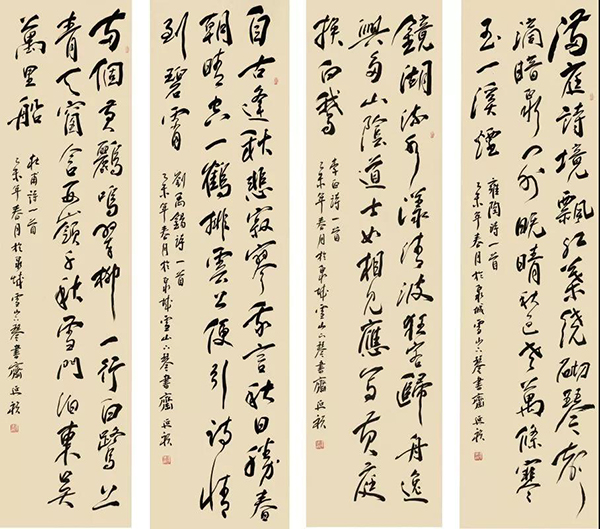 滿庭詩境飄紅葉繞砌琴聲
滴暗泉门外晚晴秋色老萬條寒
玉一溪煙
雍陶詩一首
乙未年春月於泉城雪山六琴書齋
鏡湖流水漾清波狂客歸舟逸
興多山陰道士如相見應寫黃庭
換白鵝
李白詩一首
乙未年春月於泉城雪山六琴書齋
自古逢秋悲寂寥我言秋日勝春
朝晴空一鶴排雲上便引詩情
到碧霄
劉禹錫詩一首
乙未年春月於泉城雪山六琴書齋
兩個黃鸝鳴翠柳一行白鷺上
青天窗含西嶺千秋雪門泊東吳
萬里船
杜甫詩一首
乙未年春月於泉城雪山六琴書齋